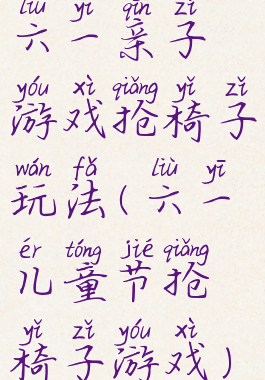 liù yī qīn zǐ
六一亲子
yóu xì qiǎng yǐ zǐ
游戏抢椅子
wán fǎ liù yī
玩法(六一
ér tóng jié qiǎng
儿童节抢
yǐ zǐ yóu xì
椅子游戏)